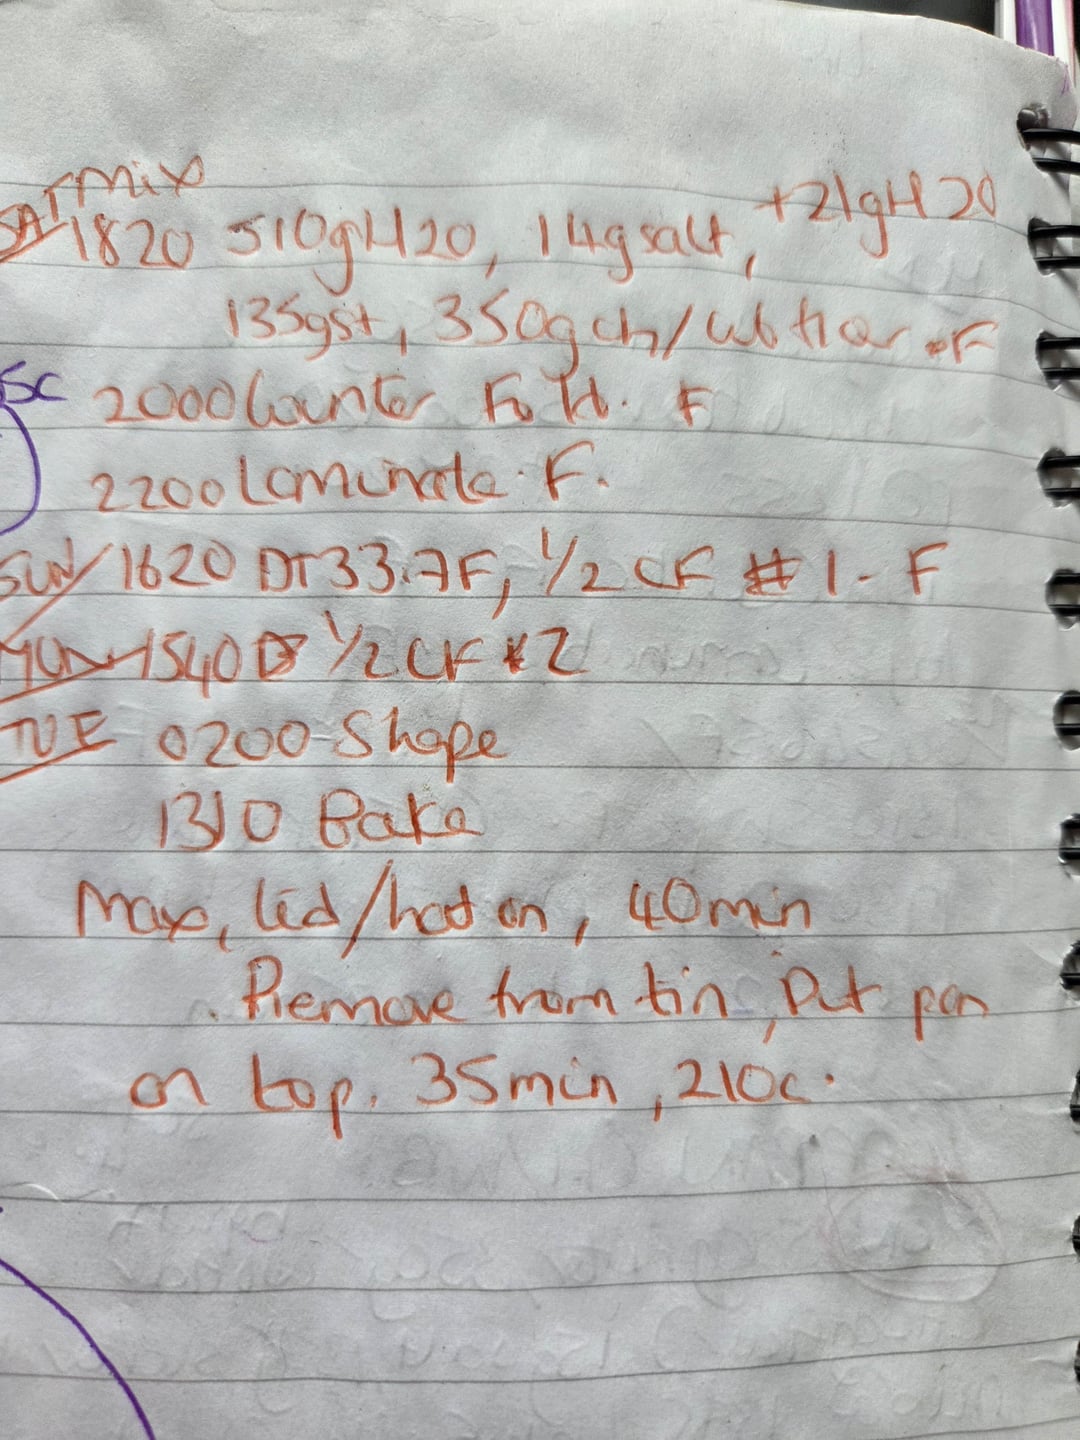 SAT mix
1820 510gH20, 14gsalt, +21gH20
135gst, 350gch/wbflour. F
SC 2000 Counter Fold. F
2200 Laminate. F.
SUN/1620 DT33.7F, 1/2 CF #1 - F
MON-1540 1/2 CF #2
TUE 0200 Shape
1310 Bake
Max, lid/hat on, 40min
. Remove from tin, Put pan
on top. 35min, 210c.